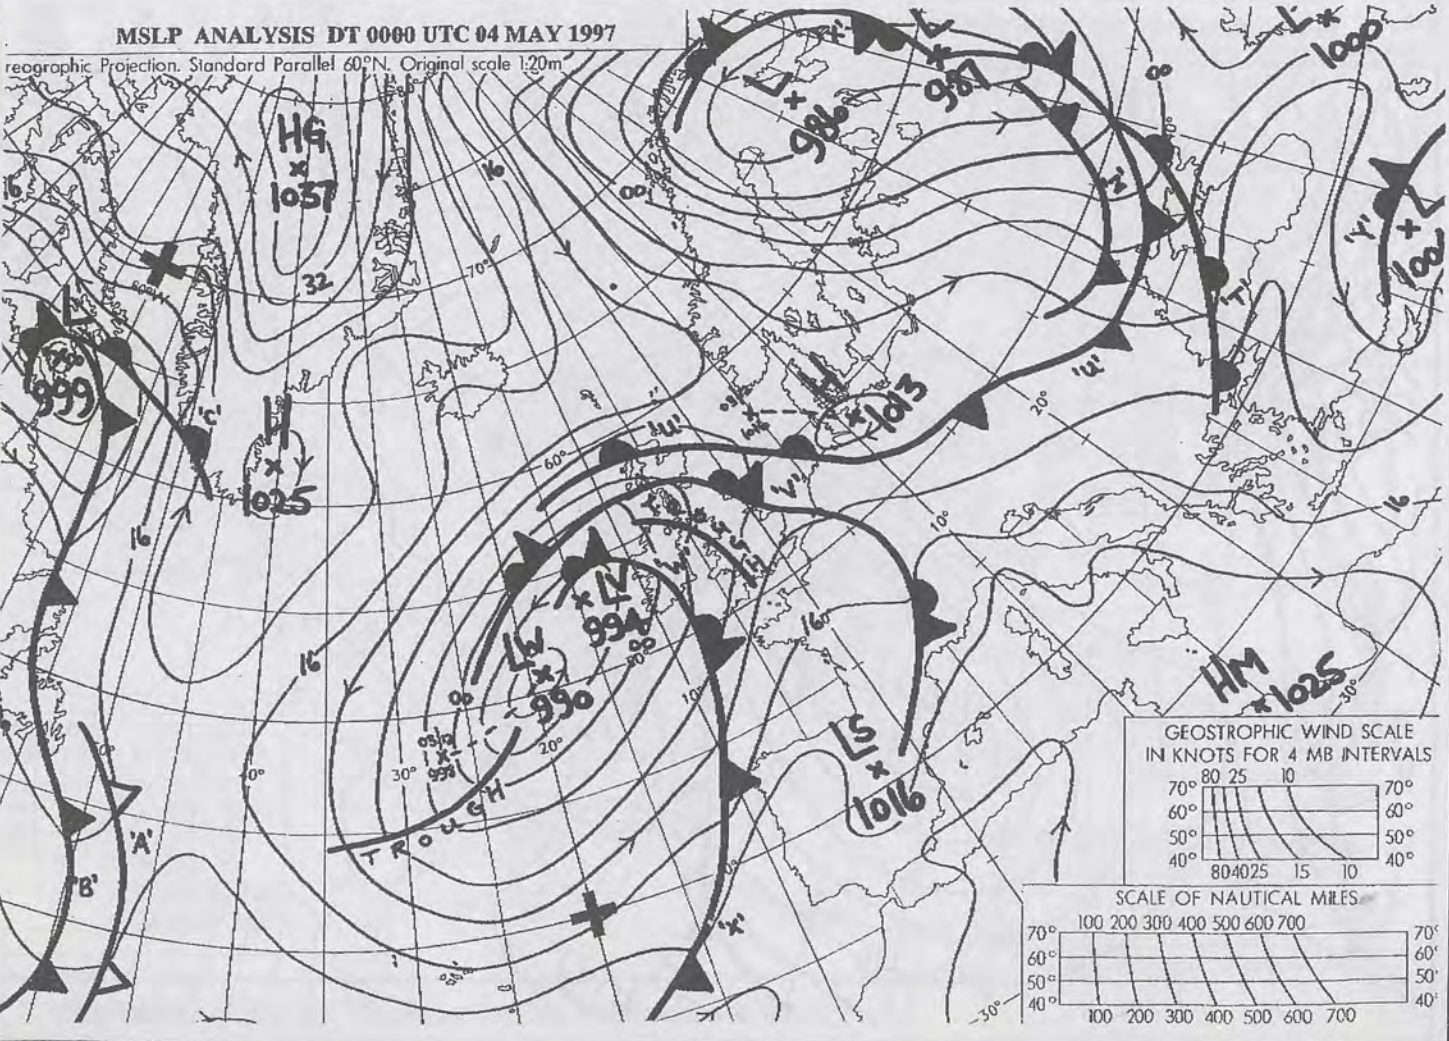 MSLP ANALYSIS DT 0000 UTC 04 MAY 1997
reographic Projection. Standard Parallel 60°N. Original scale 1:20m
HG
1037
32
L
986
L
987
L
1000
00
00
16
16
70°
L
999
'C'
H
1025
16
16
60°
'U'
H
1013
'Z'
'T'
'Y'
L
100
'U'
20°
10°
16
'Z'
'W'
LV
994
00
LW
990
00
03/12
998
20°
30°
40°
10°
TROUGH
16
LS
1016
HM
1025
30°
'A'
'B'
'X'
30°
GEOSTROPHIC WIND SCALE
IN KNOTS FOR 4 MB INTERVALS
80 25 10
70° 70°
60° 60°
50° 50°
40° 40°
80 40 25 15 10
SCALE OF NAUTICAL MILES
100 200 300 400 500 600 700
70° 70°
60° 60°
50° 50°
40° 40°
100 200 300 400 500 600 700